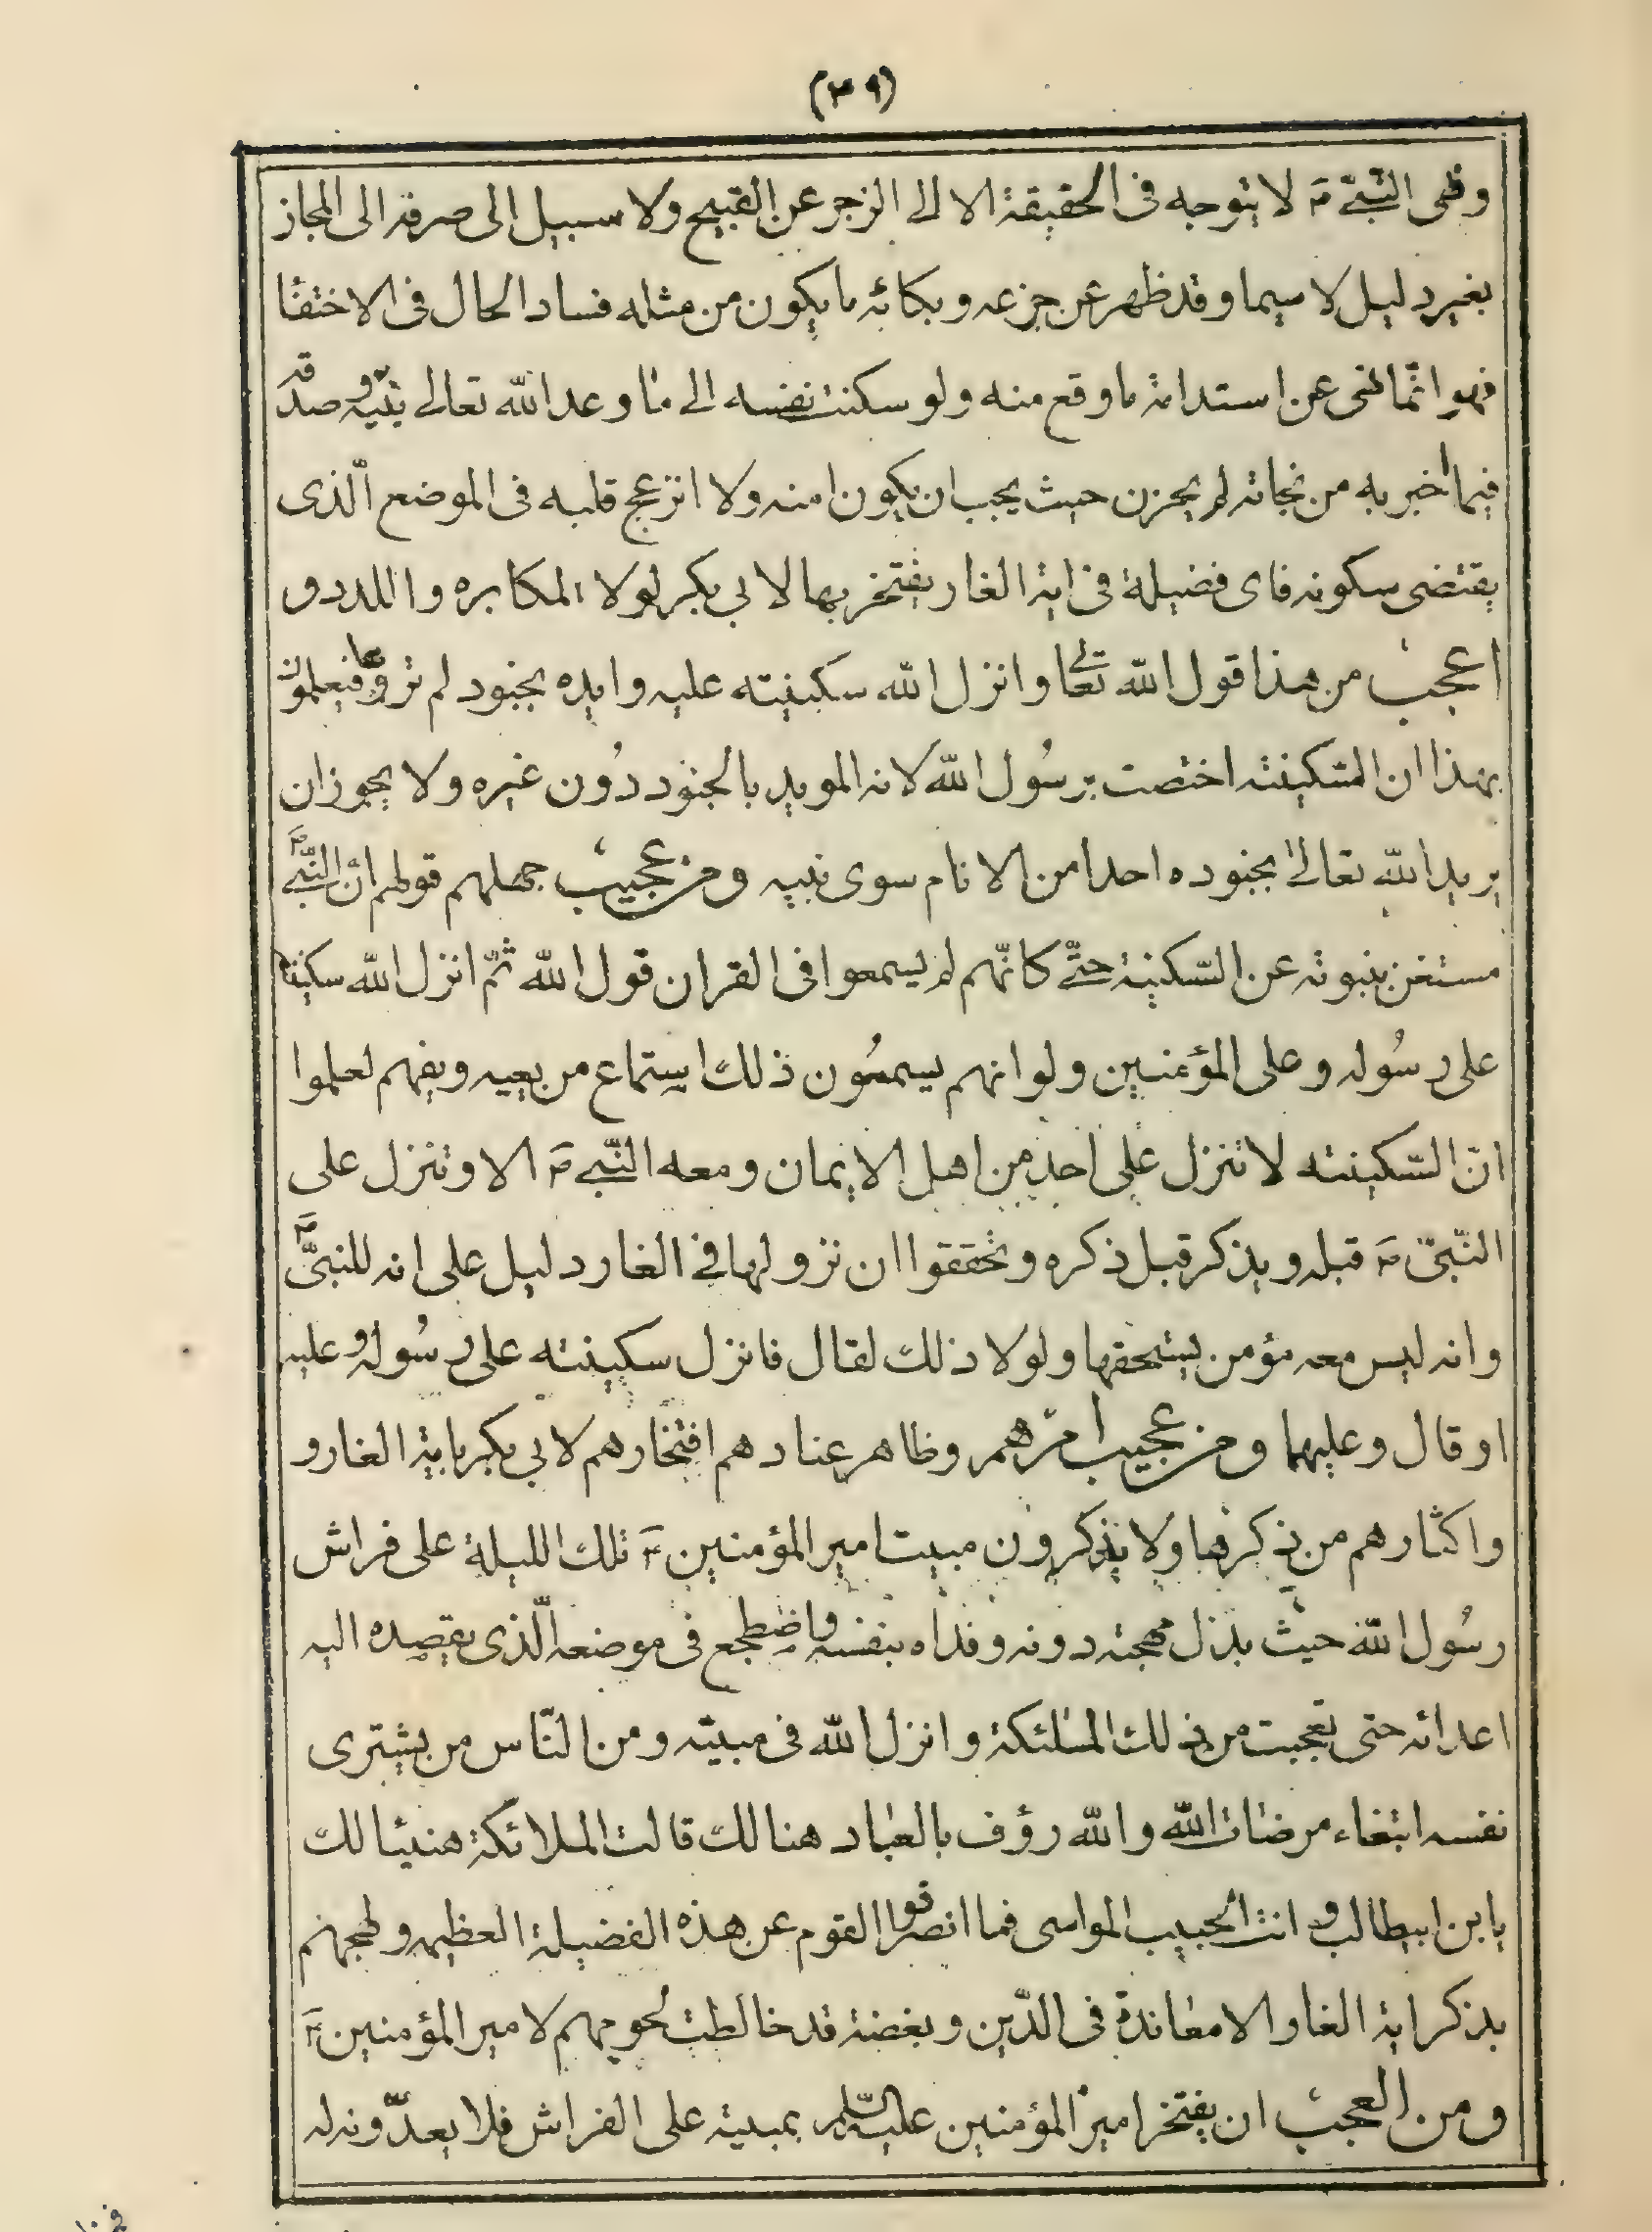 (٣٩)
ونهى النبي ص لا يتوجه فى الحقيقة الا الى الزجر عن القبيح ولا سبيل الى صرفه الى المجاز
بغير دليل لا سيما وقد ظهر عن جزعه وبكائه ما يكون من مثله فساد الحال فى الاختفا
فهو انّما نهى عن استدامة ما وقع منه ولو سكنت نفسه الى ما وعد الله تعالى نبيّه وصدّقه
فيما اخبر به من نجاته لم يحزن حيث يجب ان يكون امنه ولا انزعج قلبه فى الموضع الّذى
يقتضى سكونه فاى فضيلة فى اية الغار يفتخر بها لابى بكر لولا المكابره واللدد و
اعجب من هذا قول الله تعالى وانزل الله سكينته عليه وايده بجنود لم تروها فيعلمون
بهذا ان السّكينته اختصت برسُول الله لانه المويد بالجنود دُون غيره ولا يجوز ان
يريد الله تعالى بجنوده احدا من الانام سوى نبيه ومن عجيب جهلهم قولهم انّ النّبي ص
مستغن بنبوته عن السّكينة حتّى كانّهم لم يسمعوا فى القران قول الله ثمّ انزل الله سكينته
على رسُوله وعلى المؤمنين ولو انهم يسمعُون ذلك استماع من يعيه ويفهم لعلموا
انّ السّكينته لا تنزل على احد من اهل الايمان ومعه النّبى ص الا وتنزل على
النّبىّ ص قبله ويذكر قبل ذكره وتحققوا ان نزولها فى الغار دليل على انه للنبىّ ص
وانه ليس معه مؤمن يستحقها ولولا ذلك لقال فانزل سكينته على رسُوله وعليه
او قال وعليهما ومن عجيب امرهم وظاهر عنادهم افتخارهم لابى بكر باية الغار و
واكثارهم من ذكرها ولا يذكرون مبيت امير المؤمنين ع تلك الليلة على فراش
رسُول الله حيث بذل مهجته دونه وفداه بنفسه واضطجع فى موضعه الّذى يقصده اليه
اعدائه حتى تعجبت من ذلك الملئكة وانزل الله فى مبيته ومن النّاس من يشترى
نفسه ابتغاء مرضات الله والله رؤف بالعباد هنالك قالت الملائكة هنيئا لك
يابن ابيطالب وانت الحبيب المواسى فما انصرفوا القوم عن هذه الفضيلة العظيمه ولهجهم
بذكر اية الغا والا معاندة فى الدّين وبغضة قد خالطت لحومهم لامير المؤمنين ع
ومن العجب ان يفتخر امير المؤمنين عليه السّلم بمبيته على الفراش فلا يعدّونه له